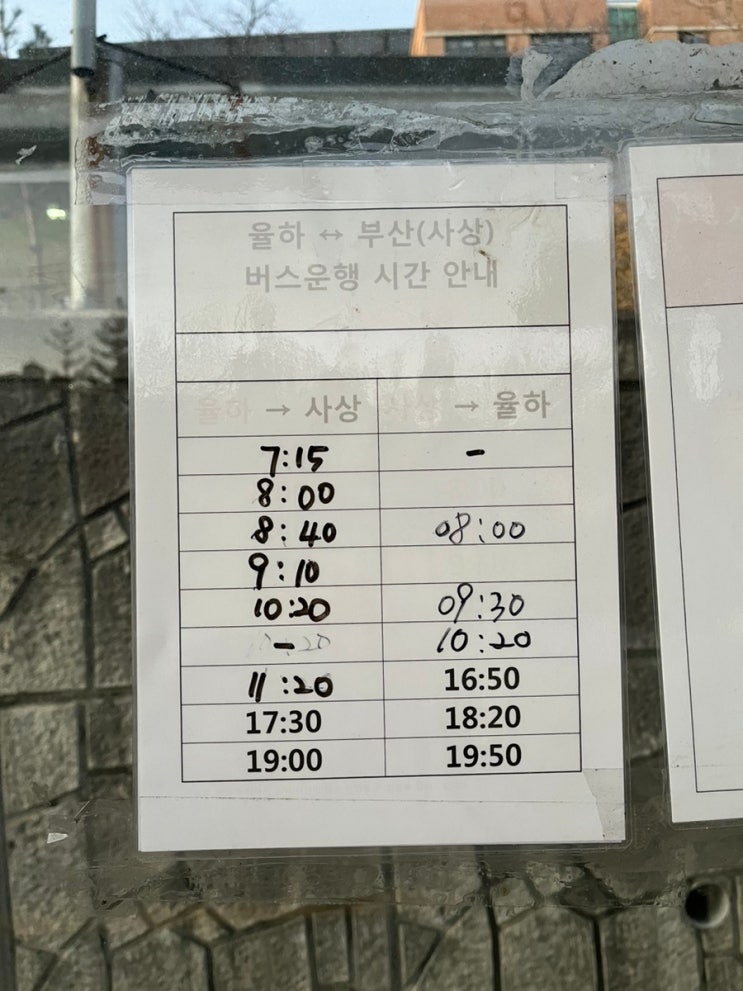 율하 ↔ 부산(사상)
버스운행 시간 안내
율하 → 사상 사상 → 율하
7:15 -
8:00
8:40 08:00
9:10
10:20 09:30
- 10:20
11:20 16:50
17:30 18:20
19:00 19:50